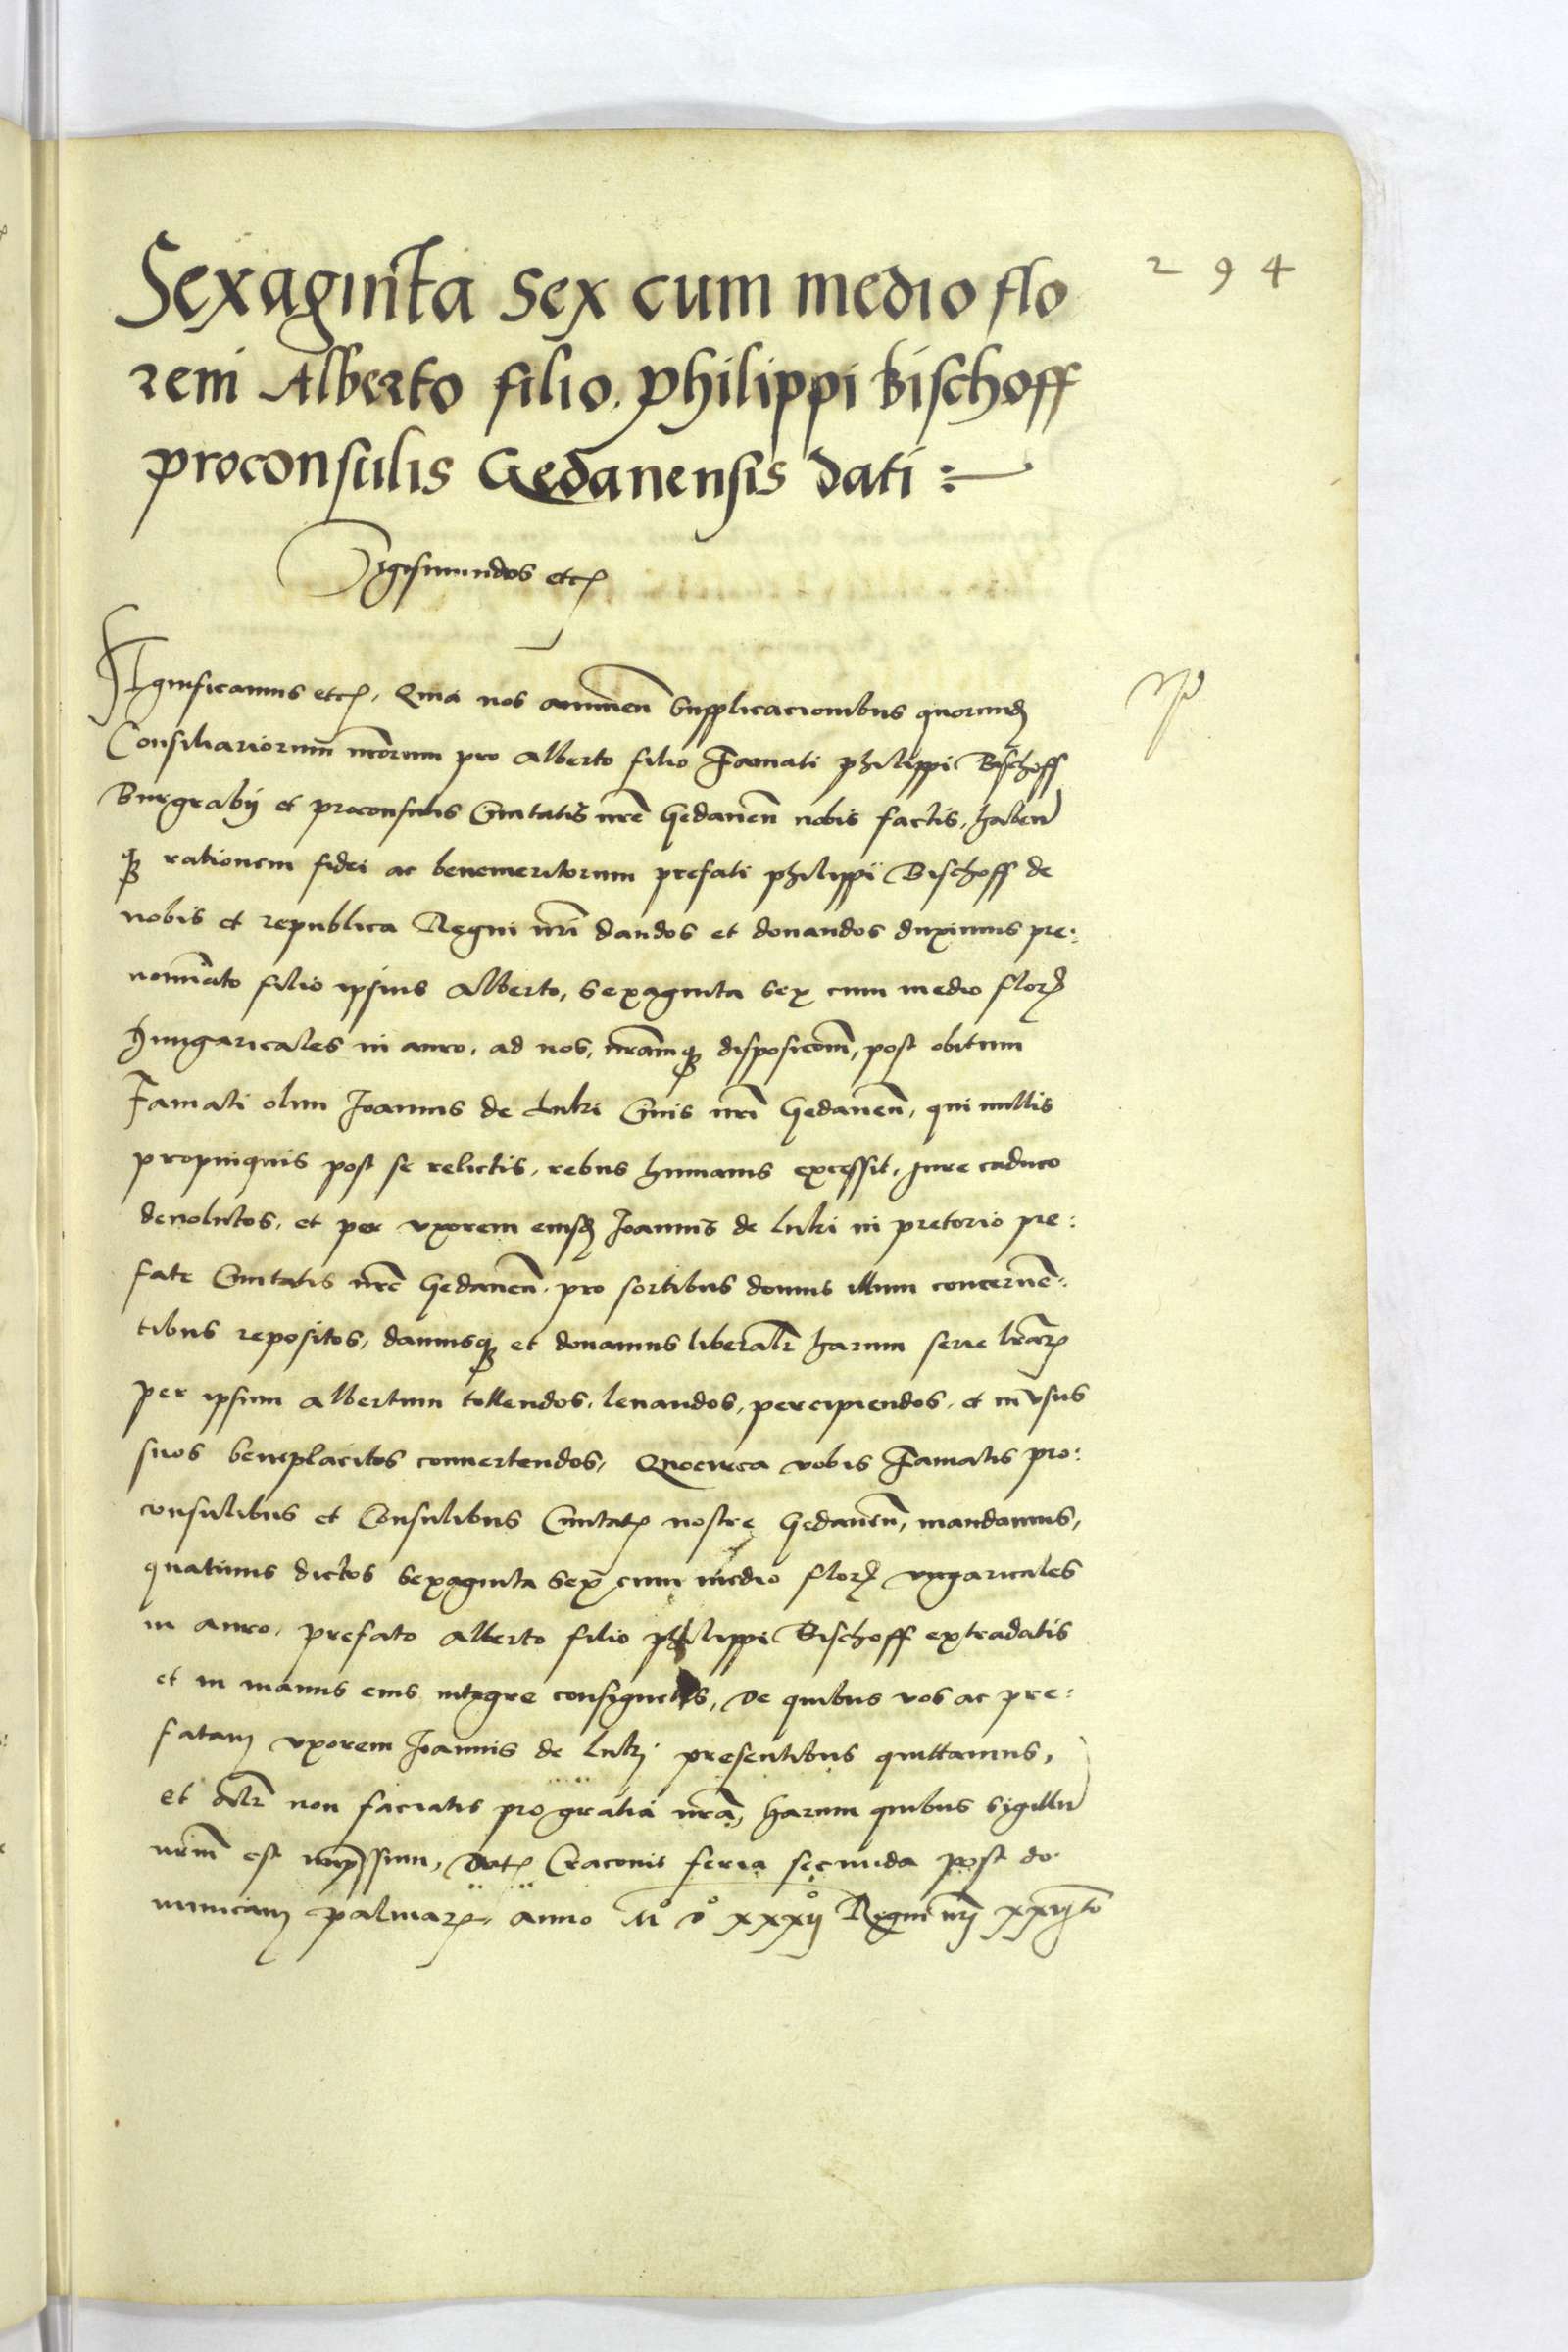 294
Sexaginta sex cum medio flo
reni Alberto filio. Philippi Bischoff
proconsulis Gedanensis dati :
Sigismundus etc
Significamus etc. Quia nos annuen supplicacionibus quorund
Consiliariorum nrorum pro Alberto filio Famati philippi Bischoff
Burgrabij et proconsulis Ciuitatis nre Gedanen nobis factis, haben
q rationem fidei ac benemeritorum prefati philippi Bischoff de
nobis et republica Regni nri dandos et donandos duximus pre:
nominato filio ipsius Alberto, sexaginta sex cum medio flor
hungaricales in auro, ad nos, nramq disposicom, post obitum
Famati olim Joannis de Lulzi Ciuis nri Gedanen, qui nullis
propinquis post se relictis, rebus humanis excessit, jure caduco
deuolutos, et per vxorem eiusd Joannis de Lulzi in pretorio pre:
fate Ciuitatis nre Gedanen pro sortibus domus illum concernen:
tibus repositos, damusq et donamus liberalr harum serie lrar
per ipsum Albertum tollendos, leuandos, percipiendos, et in vsus
suos beneplacitos conuertendos, Quocirca vobis Famatis pro:
consulibus et Consulibus Ciuitat nostre Gedanen, mandamus,
quatinus dictos sexaginta sex cum medio flor vngaricales
in auro, prefato Alberto filio philippi Bischoff extradatis
et in manus eius integre consignetis, De quibus vos ac pre:
fatam vxorem Joannis de Lulzi presentibus quittamus,
et alr non faciatis pro gratia nra, harum quibus sigillu
nrm est impssum, Dat Cracouie feria secunda post do
minicam palmar. anno Mo do xxxij Regni nrj xxvjto